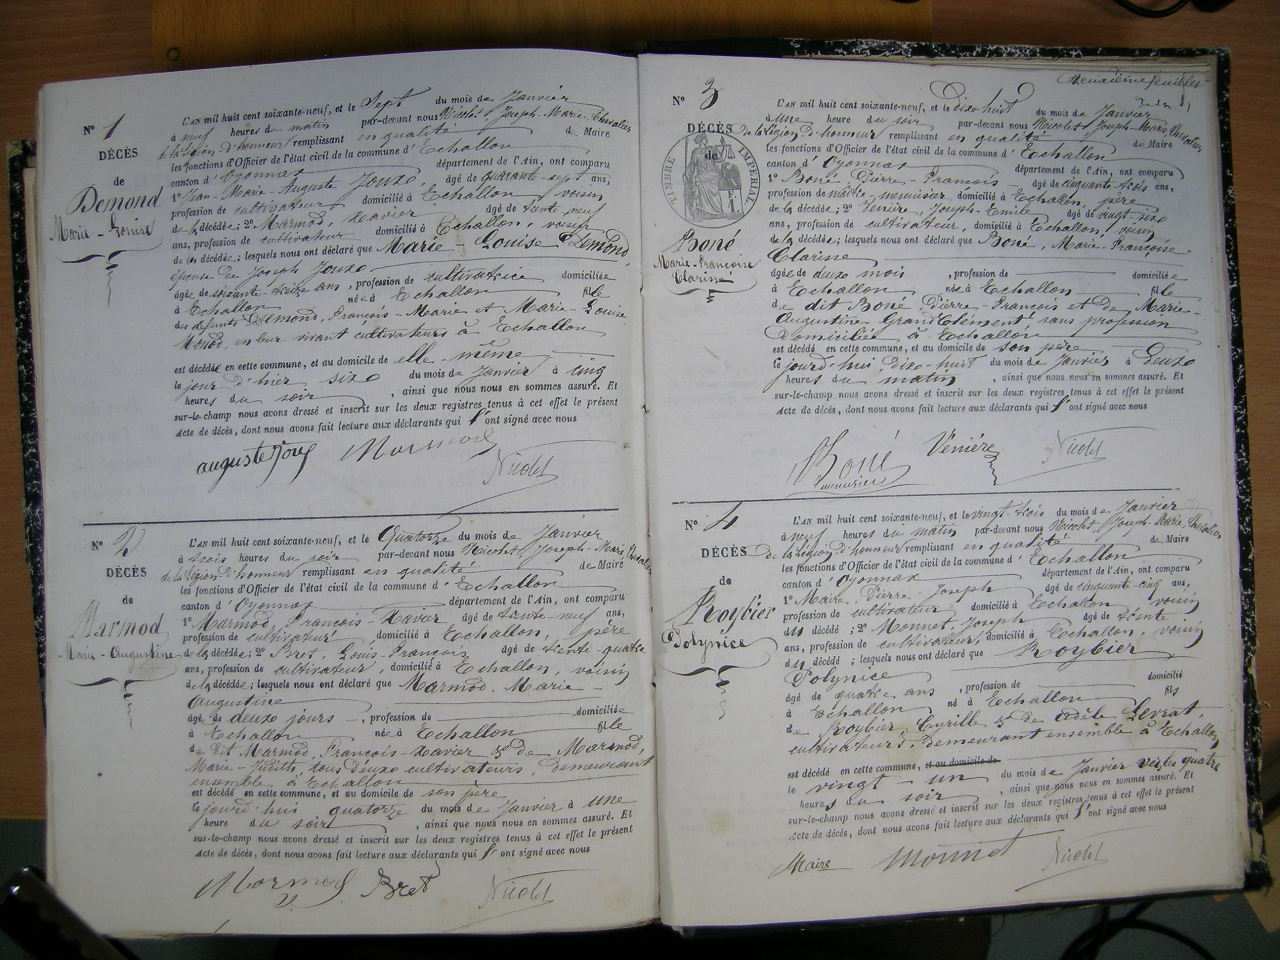 N° 1
DÉCÈS
de
Demond
Marie-Louise
L'AN mil huit cent soixante-neuf, et le Sept du mois de Janvier
à neuf heures du matin par-devant nous Nicolet Joseph-Marie, Chevalier
de la Légion d'honneur remplissant en qualité de Maire
les fonctions d'Officier de l'état civil de la commune d'Echallon
canton d'Oyonnax département de l'Ain, ont comparu
1° Jean-Marie-Auguste Jouze âgé de quarante-sept ans,
profession de cultivateur domicilié à Echallon voisin
de la décédée; 2° Marmod, Xavier âgé de trente neuf
ans, profession de cultivateur domicilié à Echallon, voisin
de la décédée; lesquels nous ont déclaré que Marie-Louise Demond,
épouse de Joseph Jouze
âgée de soixante treize ans, profession de cultivatrice domiciliée
à Echallon née à Echallon fille
des défunts Demond, François-Marie et Marie-Louise
Monod, en leur vivant cultivateurs à Echallon
est décédée en cette commune, et au domicile de elle-même
le jour d'hier six du mois de Janvier à cinq
heures du soir, ainsi que nous nous en sommes assuré. Et
sur-le-champ nous avons dressé et inscrit sur les deux registres tenus à cet effet le présent
acte de décès, dont nous avons fait lecture aux déclarants qui l'ont signé avec nous
auguste Marmod Nicolet
N° 2
DÉCÈS
de
Marmod
Marie-Augustine
L'AN mil huit cent soixante-neuf, et le Quatorze du mois de Janvier
à trois heures du soir par-devant nous Nicolet Joseph-Marie Chevalier
de la Légion d'honneur remplissant en qualité de Maire
les fonctions d'Officier de l'état civil de la commune d'Echallon
canton d'Oyonnax département de l'Ain, ont comparu
1° Marmod, François-Xavier âgé de trente-neuf ans,
profession de cultivateur domicilié à Echallon, père
de la décédée; 2° Bret, Louis-François âgé de trente-quatre
ans, profession de cultivateur, domicilié à Echallon, voisin
de la décédée; lesquels nous ont déclaré que Marmod, Marie-
Augustine
âgé de deux jours, profession de domiciliée
à Echallon née à Echallon fille
de dit Marmod, François-Xavier et de Marmod,
Marie-Judith, tous deux cultivateurs, demeurant
ensemble à Echallon
est décédée en cette commune, et au domicile de son père
le jourd'hui quatorze du mois de Janvier à une
heure du soir, ainsi que nous nous en sommes assuré. Et
sur-le-champ nous avons dressé et inscrit sur les deux registres tenus à cet effet le présent
acte de décès, dont nous avons fait lecture aux déclarants qui l'ont signé avec nous
Marmod Bret Nicolet
Deuxième feuillet
N° 3
DÉCÈS
de
TIMBRE IMPÉRIAL
Boné
Marie-Françoise
Clarisse
L'AN mil huit cent soixante-neuf, et le dix huit du mois de Janvier
à une heure du soir par-devant nous Nicolet Joseph-Marie, Chevalier
de la Légion d'honneur remplissant en qualité de Maire
les fonctions d'Officier de l'état civil de la commune d'Echallon
canton d'Oyonnax département de l'Ain, ont comparu
1° Boné Pierre-François âgé de cinquante-trois ans,
profession de maître menuisier domicilié à Echallon, père
de la décédée; 2° Venière, Joseph Emile âgé de vingt six
ans, profession de cultivateur, domicilié à Echallon, voisin
de la décédée; lesquels nous ont déclaré que Boné Marie-Françoise
Clarisse
âgée de deux mois, profession de domiciliée
à Echallon née à Echallon fille
de dit Boné Pierre-François et de Marie-
Augustine Grand Clément sans profession
domiciliés à Echallon
est décédé en cette commune, et au domicile de son père
le jourd'hui dix-huit du mois de Janvier à deux
heures du matin, ainsi que nous nous en sommes assuré. Et
sur-le-champ nous avons dressé et inscrit sur les deux registres tenus à cet effet le présent
acte de décès, dont nous avons fait lecture aux déclarants qui l'ont signé avec nous
Boné Venière Nicolet
menuisier
N° 4
DÉCÈS
de
Roybier
Polynice
L'AN mil huit cent soixante-neuf, et le vingt-trois du mois de Janvier
à neuf heures du matin par-devant nous Nicolet Joseph-Marie, Chevalier
de la Légion d'honneur remplissant en qualité de Maire
les fonctions d'Officier de l'état civil de la commune d'Echallon
canton d'Oyonnax département de l'Ain, ont comparu
1° Maire, Pierre-Joseph âgé de cinquante-cinq ans,
profession de cultivateur domicilié à Echallon, voisin
du décédé; 2° Monnet, Joseph âgé de trente
ans, profession de cultivateur, domicilié à Echallon, voisin
du décédé; lesquels nous ont déclaré que Roybier
Polynice
âgé de quatre ans, profession de domicilié
à Echallon né à Echallon fils
de Roybier, Cyrille et de Adèle Levrat,
cultivateurs, demeurant ensemble à Echallon
est décédé en cette commune, et au domicile de
le vingt un du mois de Janvier vers les quatre
heures du soir, ainsi que nous nous en sommes assuré. Et
sur-le-champ nous avons dressé et inscrit sur les deux registres tenus à cet effet le présent
acte de décès, dont nous avons fait lecture aux déclarants qui l'ont signé avec nous
Maire Monnet Nicolet